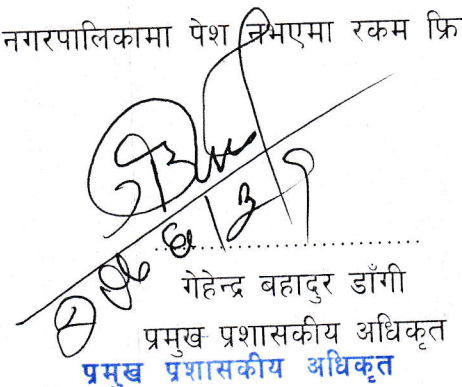 नगरपालिकामा पेश नभएमा रकम फ्रि
गेहेन्द्र बहादुर डाँगी
प्रमुख प्रशासकीय अधिकृत
प्रमुख प्रशासकीय अधिकृत